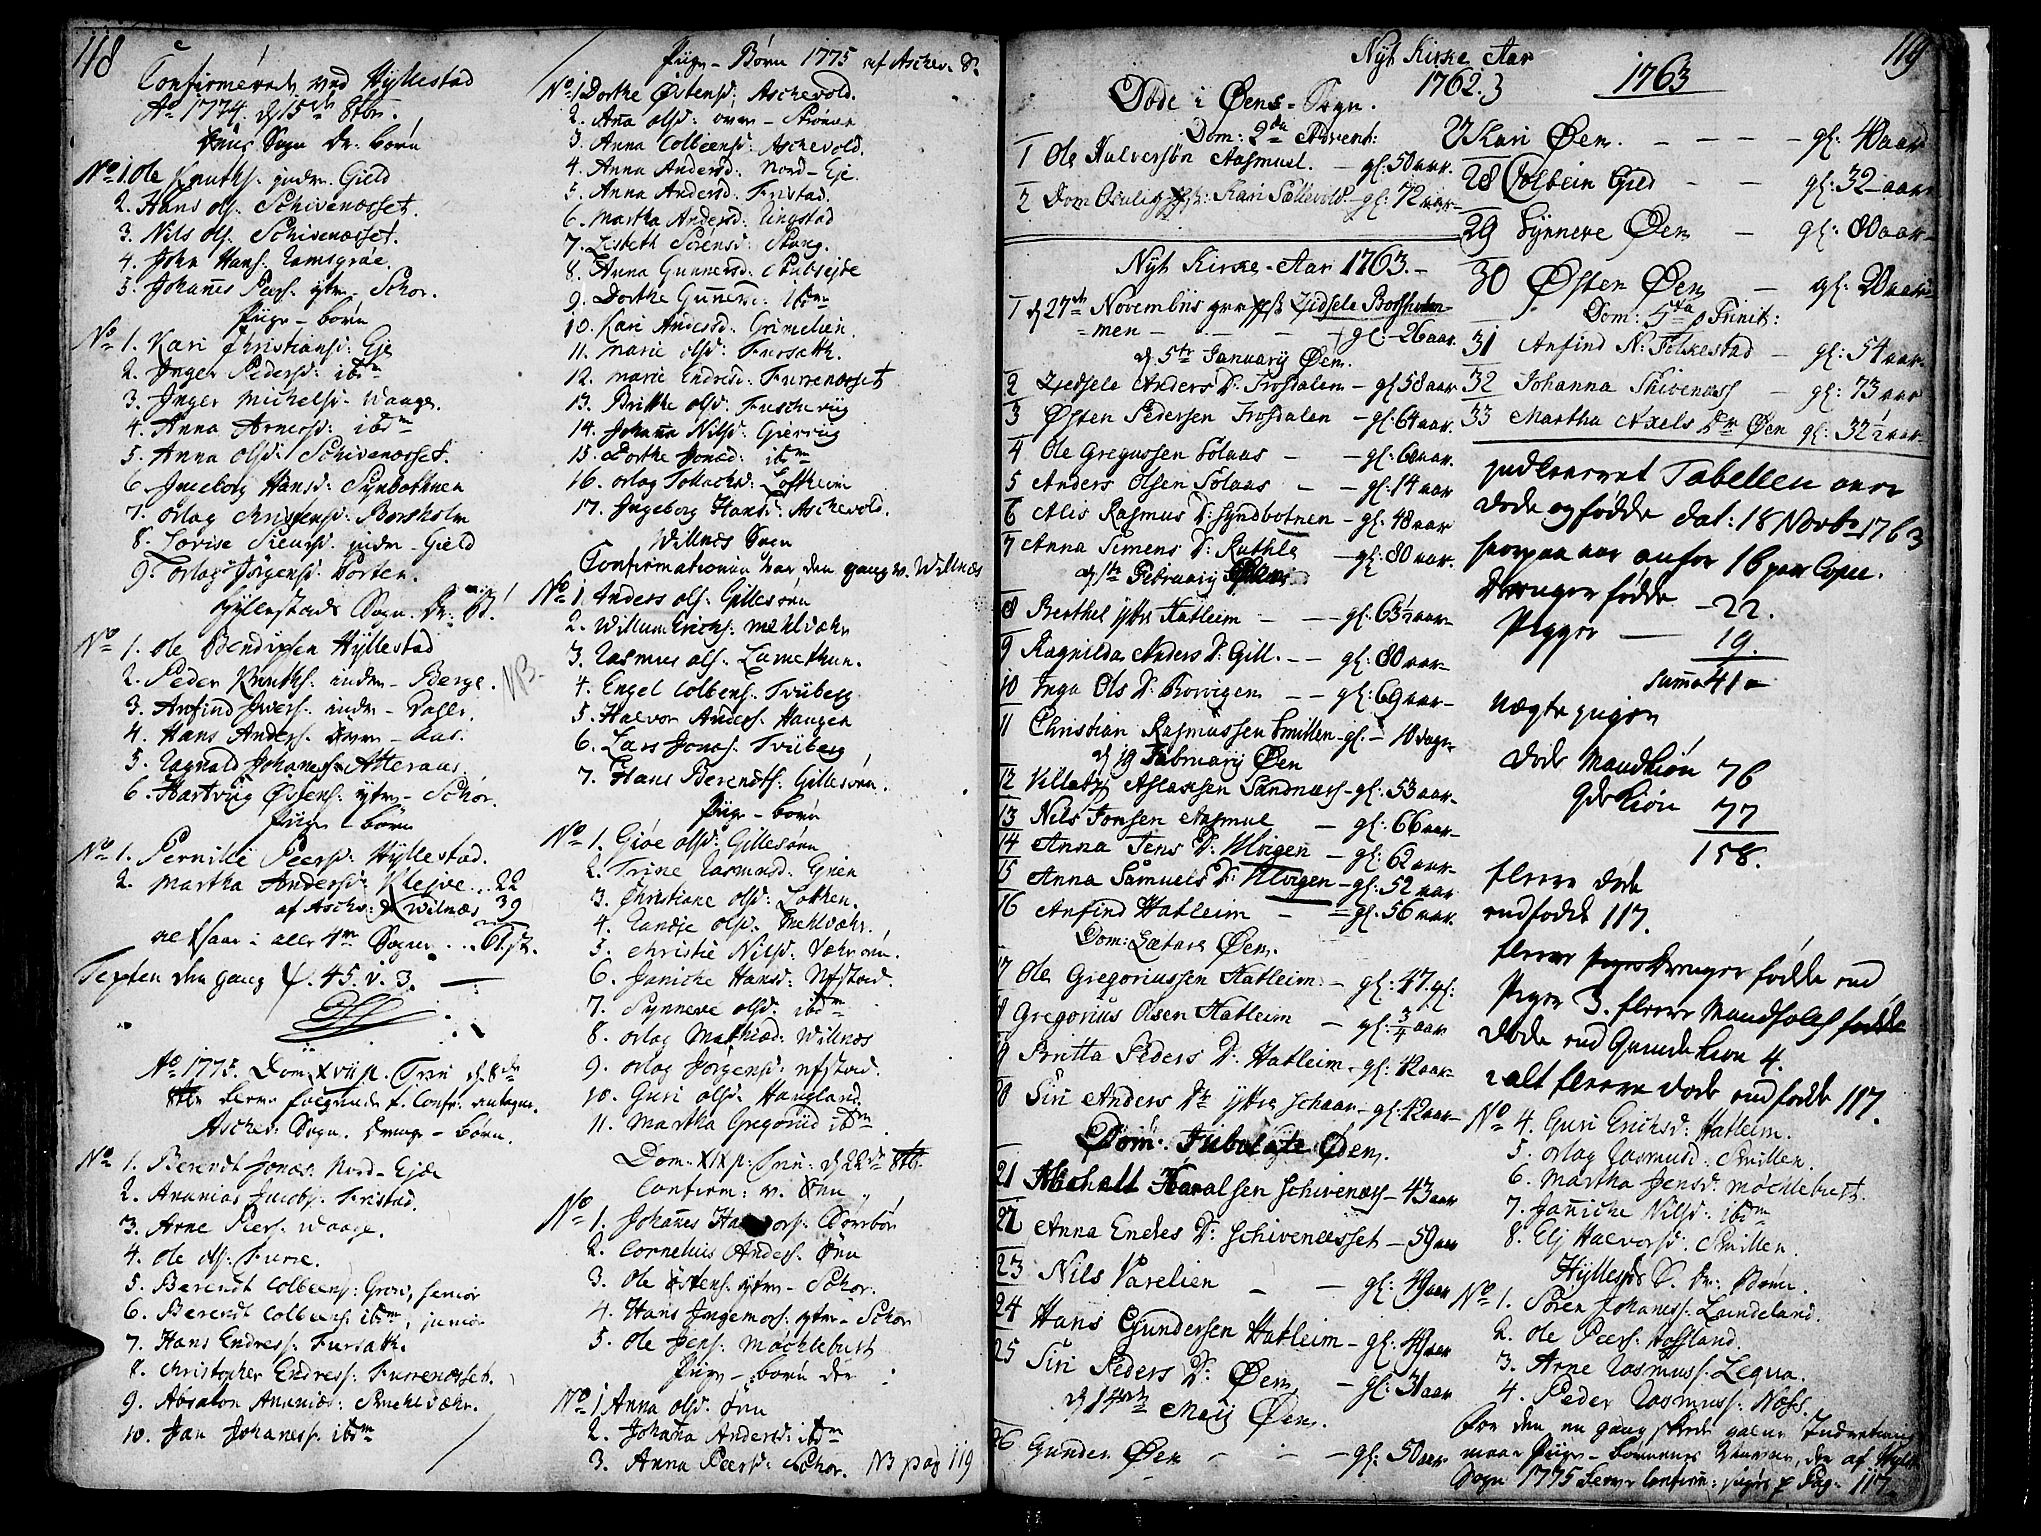 118
Confirmerede ved Hyllestad
Ao 1774. d. 15de 8br.
Sogn Dr: børn
No 1. Ole Knuths. indre Gield
2. Hans Ols. Schivenæsset.
3. Nils Ols. Schivenæsset.
4. John Hans. Ramsgrae.
5. Johanes Peers. ytre Schor.
Pige-børn
No 1. Kari Christiansd: Eje
2. Inger Pedersd: ibdm
3. Inger Michelsd. Waage.
4. Anna Arnesd: ibdm
5. Anna Olsd: Schivenæsset.
6. Ingeborg Hansd: Synbotnen
7. Orlog Christensd: Borsholm
8. Lovise Siursd. indre Gield
9. Orlog Jørgensd. Porten.
Hyllestads Sogn. Dr: B.
No 1. Ole Bendixen Hyllestad
2. Peder Knuths. indre Berge.
3. Arfind Ivers. indre
4. Hans Anders. øvre Aas.
5. Ragnald Johanes. Atteraas.
6. Hartvig Østens. ytre Schor.
Pige-børn
No 1. Pernille Peersd. Hyllestad.
2. Martha Andersd: Klejve .. 22
af Aschv: & Wilnæs 39
altsaa i alle 4re Sogne .. 61 st.
Texten den gang ψ. 45. v. 3.
Ao 1775. Dom XVII p. Trin d. 8de
Aschev: Sogn. Drenge-børn.
No 1. Berendt Jonæs. Nord-Eje
2. Ananias Jacobs. Fristad.
3. Arne Peers. Waage.
4. Ole Ols. Furre.
5. Berendt Colbeens: senior
6. Berendt Colbeens: ibdm, junior
7. Hans Endres. Fursath.
8. Christopher Endress. Furrenæsset.
9. Absalon Ananiæs: Smehlvæhr.
10. Jan Johaness. ibdm
Pige-Børn 1775 af Aschev. S.
No 1. Dorthe Østensd: Aschevold.
2. Ana Olsd: øvre Strømen
3. Anna Colbeensd: Aschevold.
4. Anna Andersd: Nord-Eje.
5. Anna Andersd: Fristad.
6. Martha Andersd: Ringstad
7. Lisbeth Sørensd: Stang.
8. Anna Gunnersd: Stubsejde
9. Dorthe Gunnersd: ibdm
10. Kari Andersd: Grimelien.
11. Marie Olsd: Fursath.
12. Marie Endresd: Furrenæsset
13. Britthe Olsd: Fuschevig
14. Johana Nilsd: Giervig
15. Dorthe Jonæd: ibdm
16. Orlog Tollachsd: Loftheim
17. Ingeborg Hansd: Aschevold.
Willnæs Sogn
Confirmationen var den gang v. Willnæs
No 1. Anders Ols: Gillesøen
2. Willum Erichs: Mehlvæhr
3. Rasmus Ols: Lamethun.
4. Engel Colbens: Tviberg
5. Halvor Anders. Haugen
6. Lars Jonæs. Tviberg
7. Hans Berendts: Gillesøen.
Pige-børn
No 1. Giøe Olsd: Gillesøen
2. Trine Rasmusd: Grien
3. Christiane Olsd: Løthen.
4. Randje Olsd. Smehlvæhr.
5. Christie Nilsd: Væhrøen.
6. Janiche Hansd: Ufstad.
7. Synneve Olsd: ibdm
8. Orlog Mathiæd: Willnæs
9. Orlog Jørgensd: Ufstad.
10. Guri Olsd: Haugland
11. Martha Gregoriid ibdm
Dom: XIX p: Trin: d. 22de 8br
Confirm: v. Øen
No 1. Johanes Halvors:
2. Cornelius Anders. Øen
3. Ole Østens. ytre Schor.
4. Hans Ingemors: ytre Schor
5. Ole Jens. Møchlebust
Pige-børn der
No 1. Anna Olsd: Øen
2. Johana Andersd: ibdm
3. Anna Peersd: Schor. NB pag 119
119
Nyt Kirke Aar
1762. 1763
Døde i Øens-Sogn.
Dom: 2da Advent:
1 Ole Halversøn Aasmul. – gl. 50 aar.
2 Dom Kari Sællevold – gl: 72 aar
Nyt Kirke-Aar 1763.
1 d 27de Novembris Zidsele Borsholm-
men – gl: 26 aar.
d. 5te January Øen.
2 Zidsele Anders D: Frosdalen – gl 58 aar
3 Østen Pedersen Frosdalen – gl. 64 aar.
4 Ole Gregussen Solaas – gl: 60 aar.
5 Anders Olsen Solaas – gl: 14 aar
6 Alis Rasmus D: Syndbotnen – gl: 48 aar
7 Anna Simens D: Ruthle – gl: 80 aar.
d. 1te February
8 Berthel ytre Hatleim – gl: 63½ aar
9 Ragnilda Anders D: Gill. – gl: 80 aar
10 Inga Ols D: Borvigen – gl: 69 aar
11 Christian Rasmussen Smillen – gl. – 10 dage
d. 19 February Øen
12 Aslaksen Sandnæs – gl: 53 aar
13 Nils Jonsen Aasmul – gl: 66 aar
14 Anna Jens D: Ulvigen – gl: 62 aar
15 Anna Samuels D: Ulvigen – gl: 52 aar
16 Anfind Hatleim – gl: 56 aar.
Dom: Lætare Øen.
17 Ole Gregoriussen Hatleim – gl: 47.
18 Gregorius Olsen Hatleim – gl: ¾ aar
19 Britta Peders D: Hatleim. – gl: 42 aar
20 Siri Anders Dr ytre Schaar – gl: 42 aar
Dom: Jubilate Øen.
21 Schivenæs – 43 aar
22 Anna Endes D: Schivenæsset – 59 aar
23 Nils Varelien – gl: 49 aar
24 Hans Gundersen Hatleim – gl: 49 aar
25 Siri Peders D: Øen – gl: 31 aar
Maij Øen.
26 Gunder Øen – gl: 50 aar
27 Kari Øen. – gl: 40 aar
28 Colbein Gild – gl: 32 aar
29 Synneve Øen – gl: 80 aar
30 Østen Øen – gl. 20 aar
Dom: 5ta p Trinit:
31 Anfind N: Filkestad – gl: 54 aar.
32 Johanna Skivenæss – gl: 73 aar
33 Martha Axels Dr Øen gl: 32½ aar
indleveret Tabellen over
døde og fødde dat: 18 Novbr 1763
Drenger fødde – 22.
Piger – 19.
Summa 41
døde Mandkiøn 76
Qdekiøn 77
158.
flere døde
end fødde 117.
flere Drenger fødde end
Piger 3. flere Mandfolch
døde end Qvindekiøn 4.
i alt flere døde end fødde 117.
No 4. Guri Erichsd: Hatleim.
5. Orlog Rasmusd: Smillen.
6. Martha Jensd: Møchlebust.
7. Janiche Nilsd: ibdm
8. Elj Halvorsd: Smillen.
Hyllestds S. Dr: Børn.
No 1. Søren Johaness: Lundeland.
2. Ole Peers: Hofland.
3. Arne Rasmuss: Leqva.
4. Peder Rasmuss: Nofs.
For den en gang skede Indretning
maae Pige-børnenes Navne, der af Hylle
Sogn 1775 bleve Confirm: søges p Pag: 117.